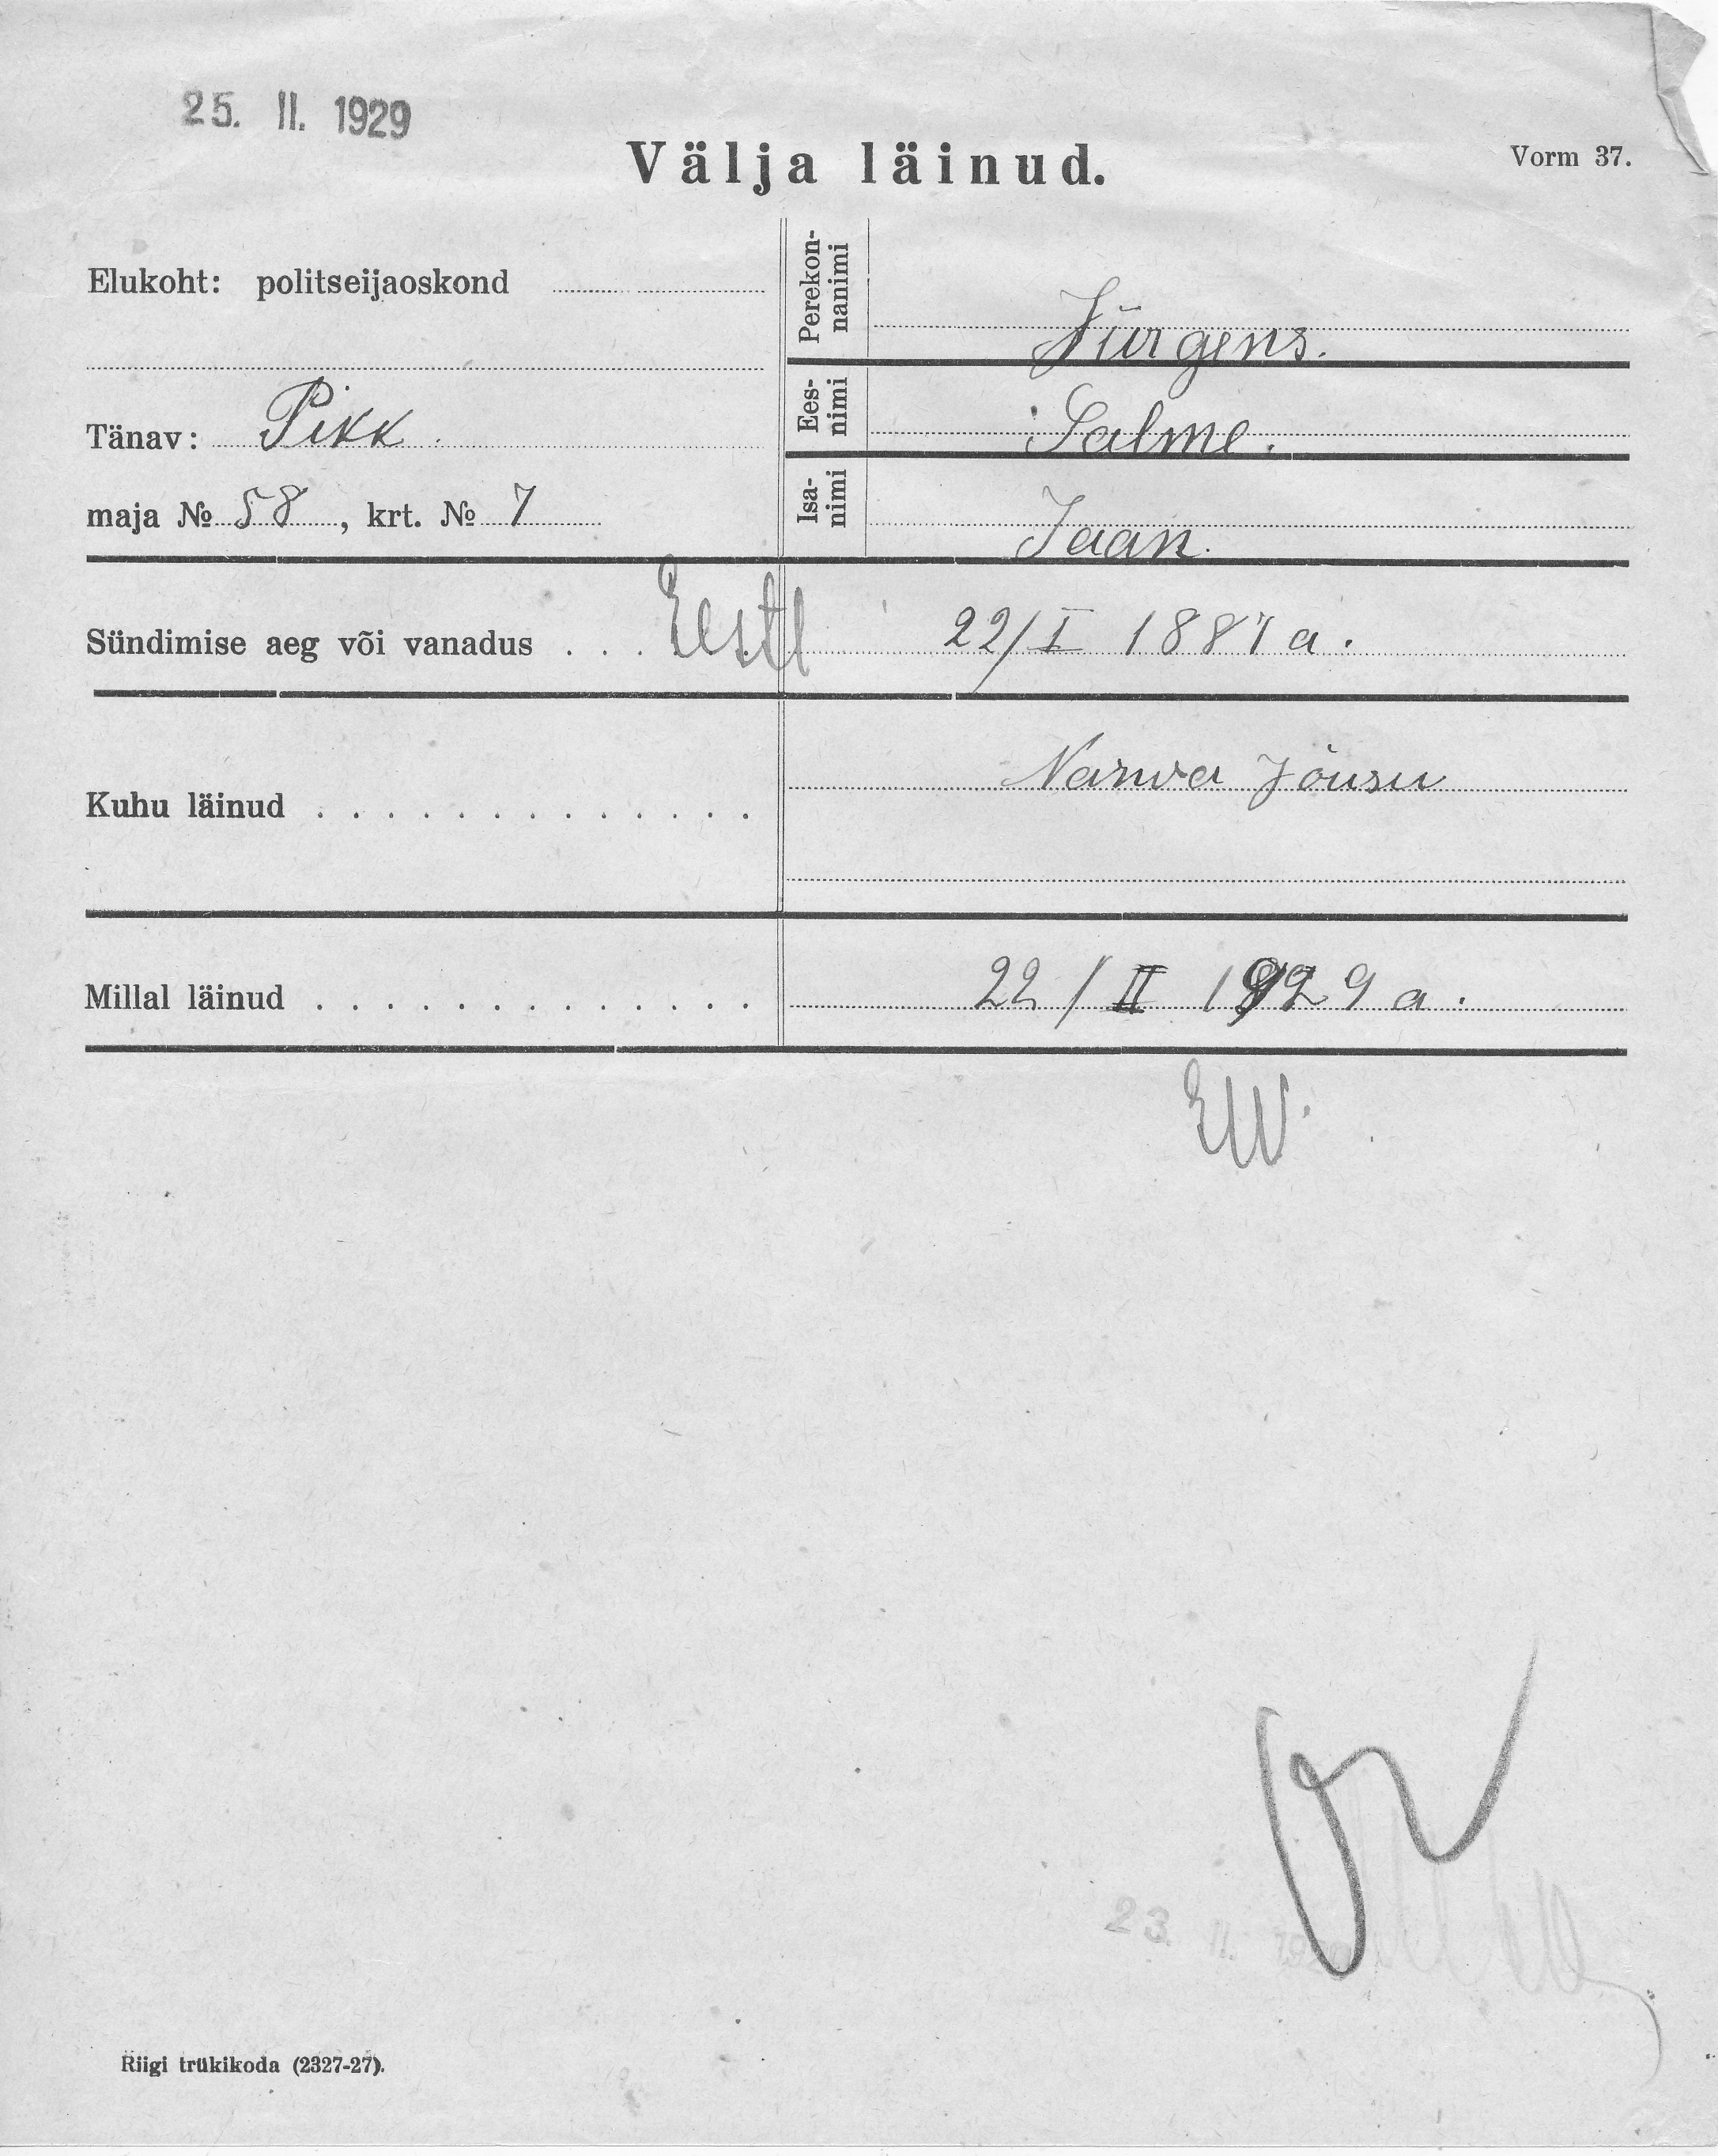 25. II. 1929
Välja läinud.
Vorm 37.
Elukoht: politseijaoskond
Tänav: Pikk
maja № 58, krt. № 7
Perekon-
nanimi
Jürgens.
Ees-
nimi
Salme.
Isa-
nimi
Jaan.
Sündimise aeg või vanadus . . . Eesti 22/I 1887 a.
Kuhu läinud . . . . . . . . . . . . . . Narva Jõusu
Millal läinud . . . . . . . . . . . . . . 22/II 1929 a.
EW.
23. II. 
Riigi trükikoda (2327-27).